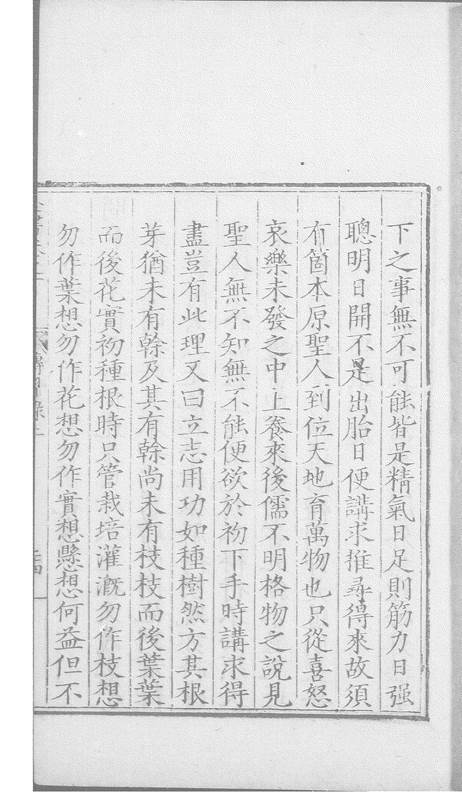 下之事無不可能皆是精氣日足則筋力日强
聰明日開不是出胎日便講求推尋得來故須
有箇本原聖人到位天地育萬物也只從喜怒
哀樂未發之中上養來後儒不明格物之說見
聖人無不知無不能便欲於初下手時講求得
盡豈有此理又曰立志用功如種樹然方其根
芽猶未有幹及其有幹尚未有枝枝而後葉葉
而後花實初種根時只管栽培灌漑勿作枝想
勿作葉想勿作花想勿作實想懸想何益但不